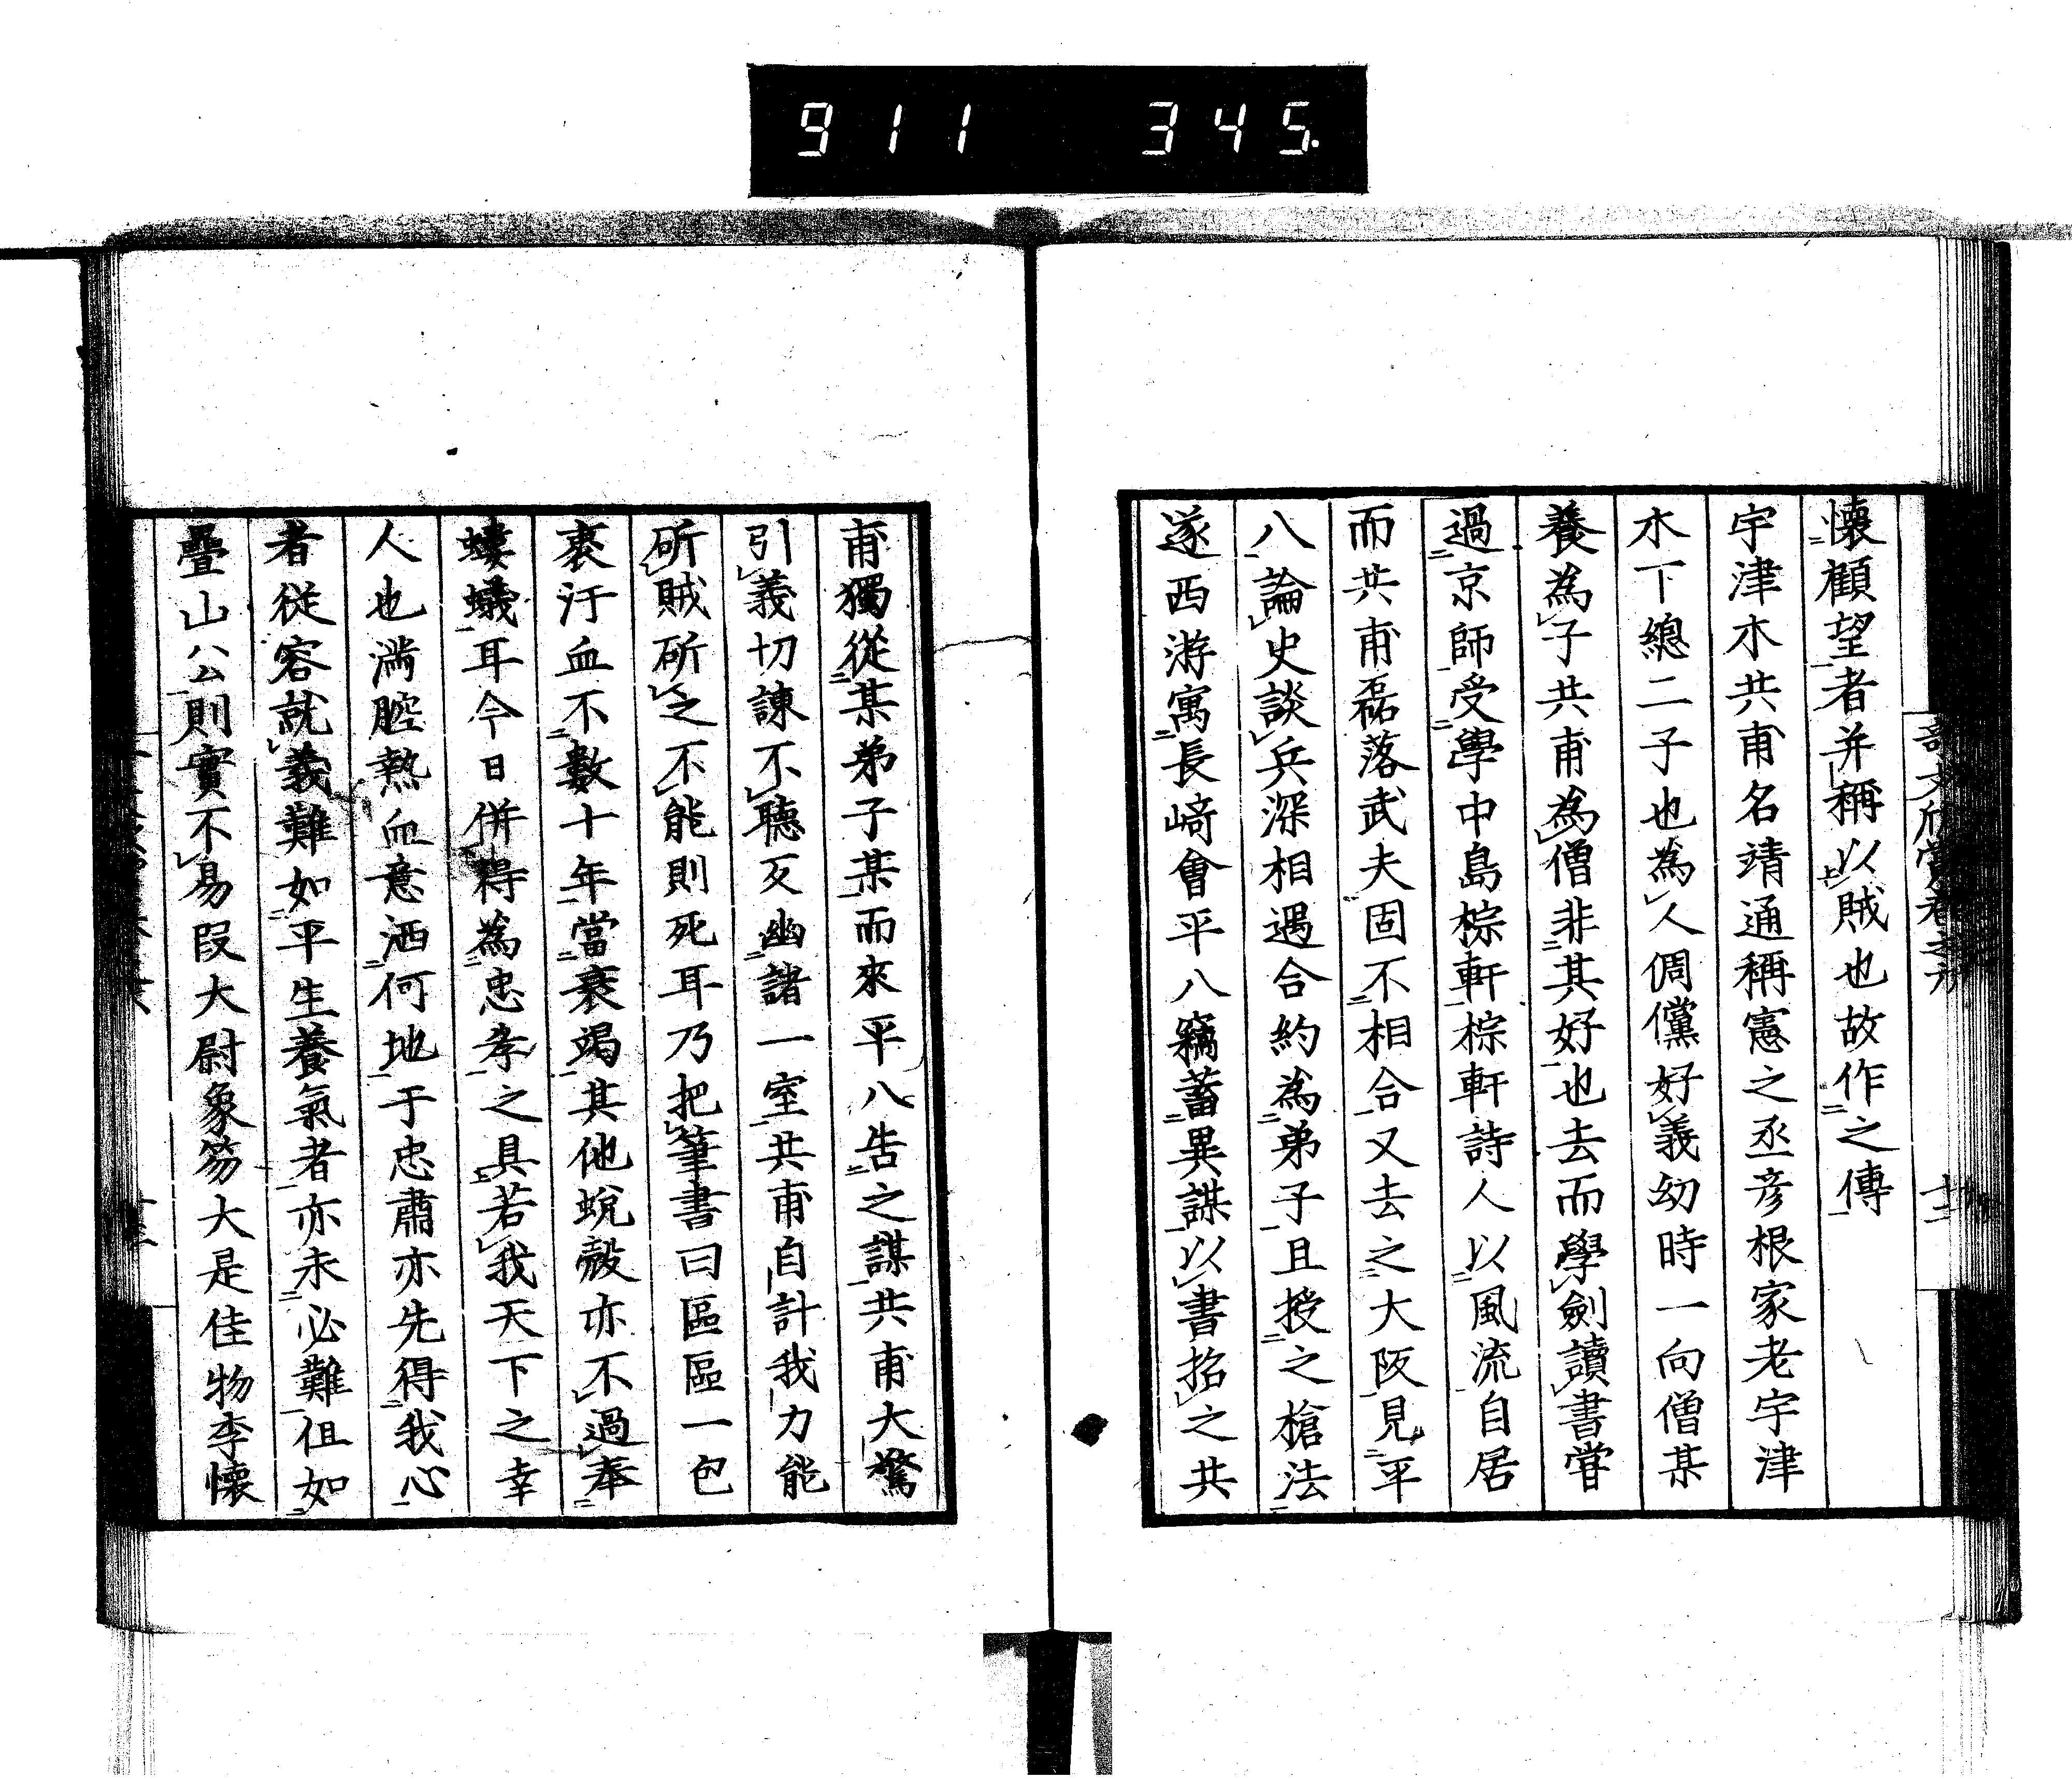 911 345.
懷顧望者并稱以賊也故作之傳
宇津木共甫名靖通稱憲之丞彦根家老宇津
木下總二子也為人倜儻好義幼時一向僧某
養為子共甫為僧非其好也去而學劍讀書甞
過京師受學中島棕軒棕軒詩人以風流自居
而共甫磊落武夫固不相合又去之大阪見平
八論史談兵深相遇合約為弟子且授之槍法
遂西游寓長﨑會平八竊蓄異謀以書招之共
甫獨從某弟子某而來平八告之謀共甫大驚
引義切諫不聽反幽諸一室共甫自計我力能
斫賊斫之不能則死耳乃把筆書曰區區一包
裹汙血不數十年當衰竭其他蛻殼亦不過奉
螻蟻耳今日併得為忠孝之具若我天下之幸
人也滿腔熱血意洒何地于忠肅亦先得我心
者從容就義難如平生養氣者亦未必難但如
疊山公則實不易段大尉象笏大是佳物李懷